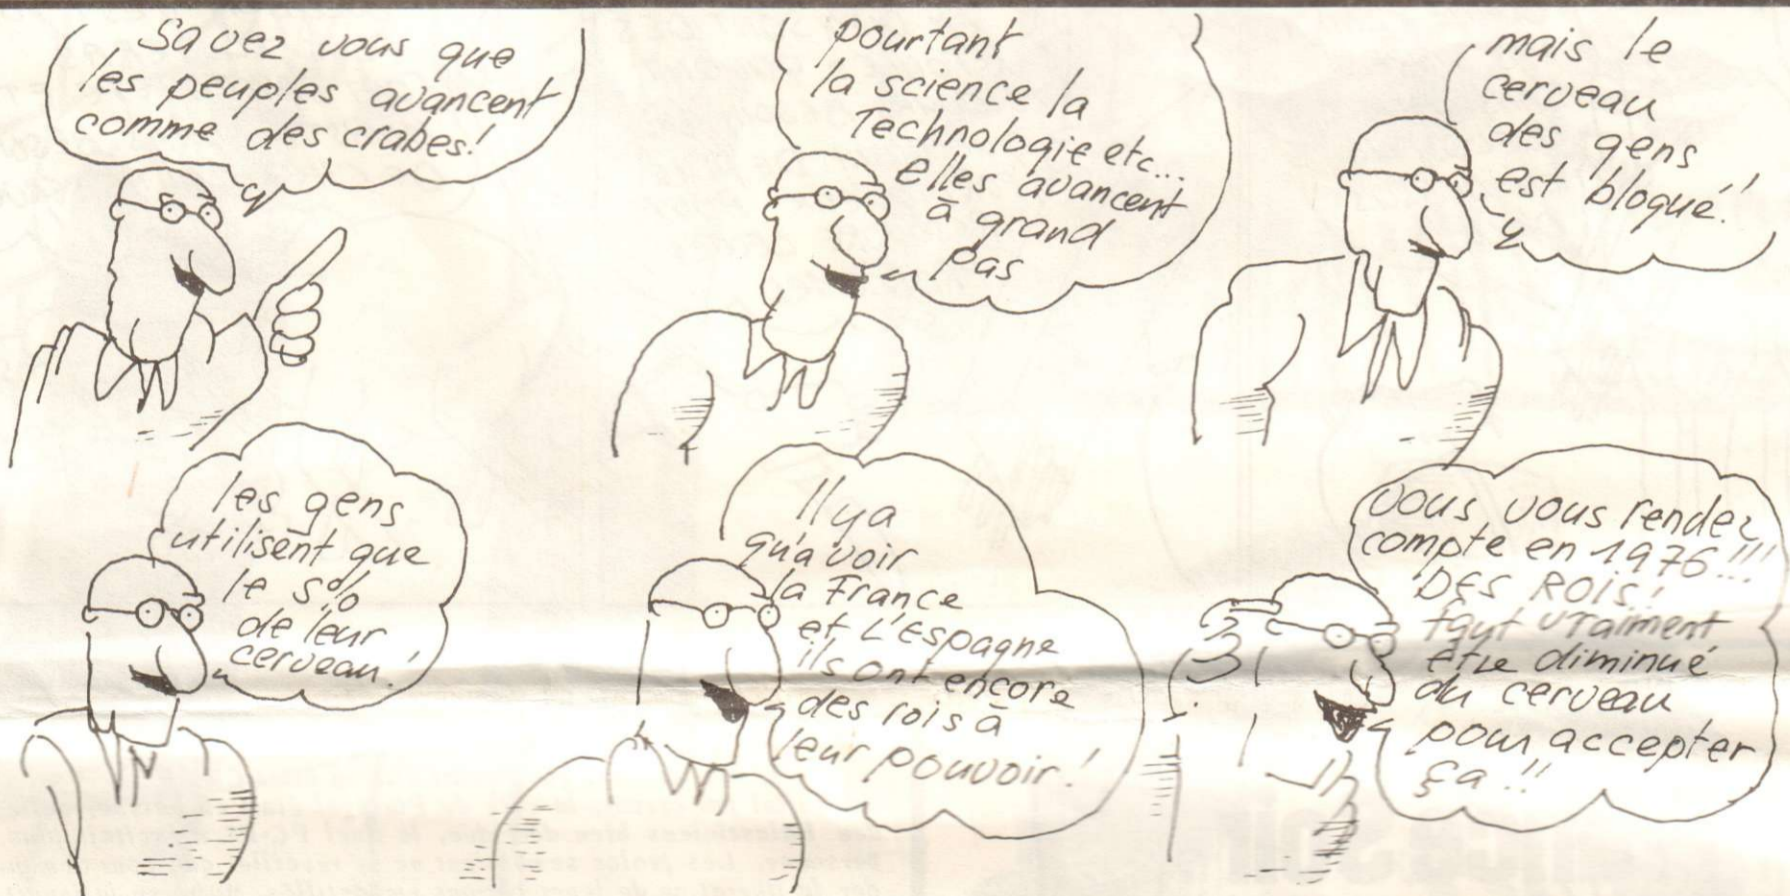 Savez vous que
les peuples avancent
comme des crabes!
pourtant
la science la
Technologie etc...
elles avancent
à grand
pas
mais le
cerveau
des gens
est bloqué!
les gens
utilisent que
le 5%
de leur
cerveau!
Il y a
qu'à voir
la France
et L'Espagne
ils ont encore
des rois à
leur pouvoir!
vous vous rendez
compte en 1976!!!
DES ROIS!
faut vraiment
être diminué
du cerveau
pour accepter
ça!!